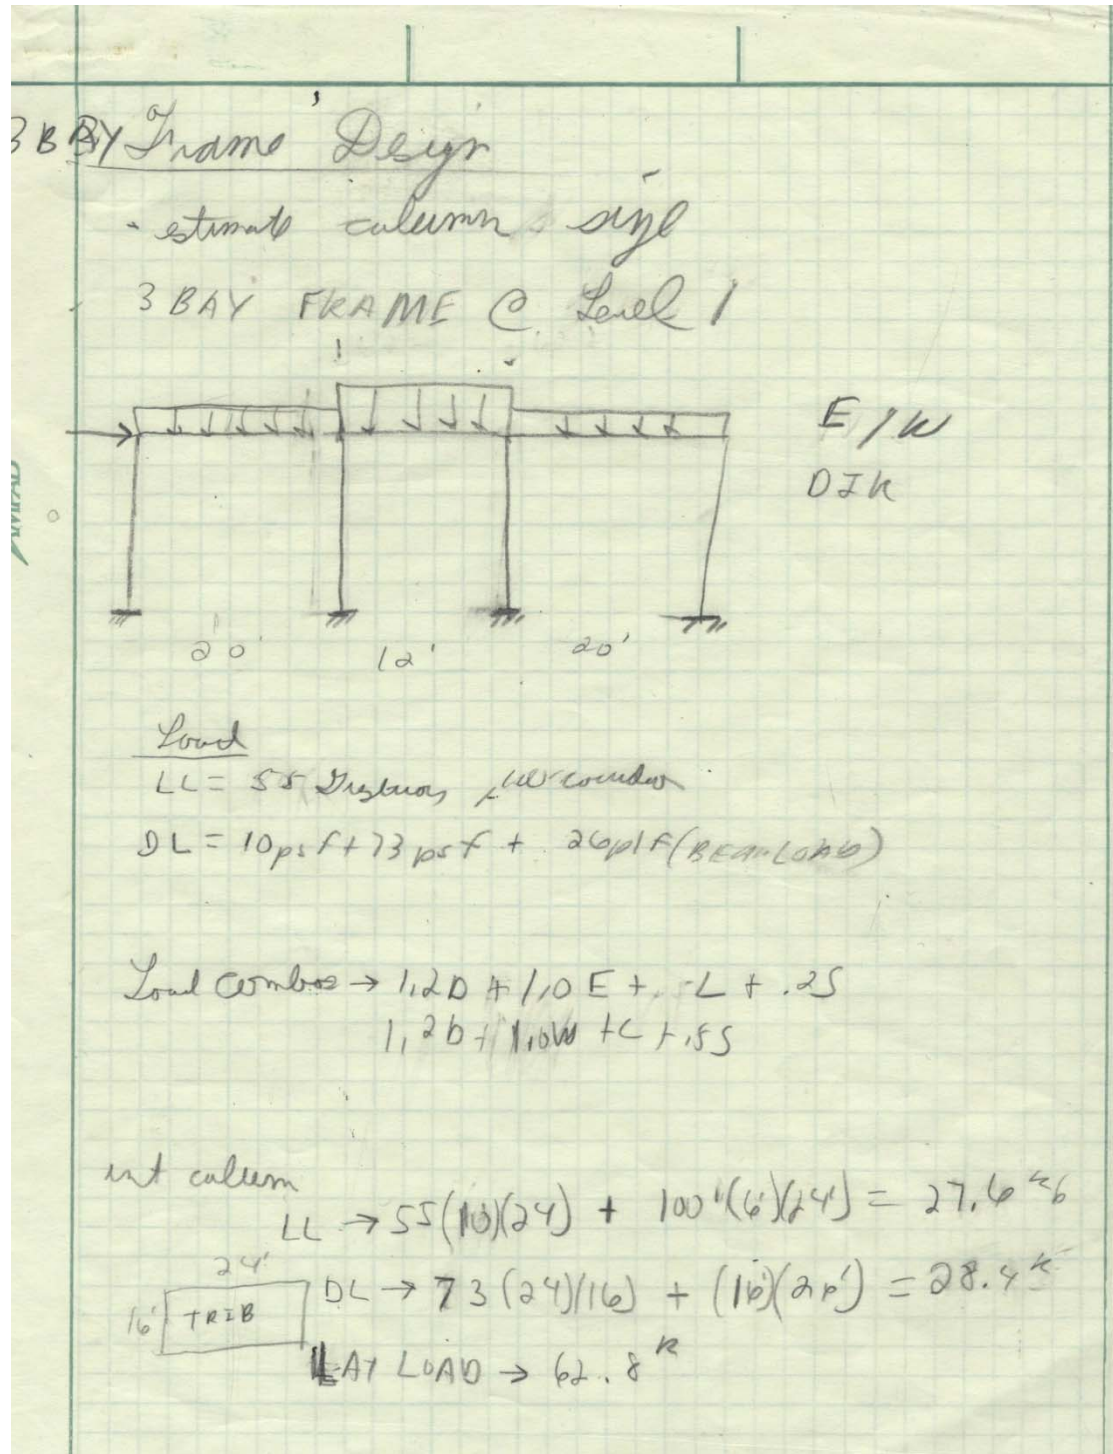 3 BAY Frame Design
- estimate column size
3 BAY FRAME @ Level 1
E/W
DIR
AMPAD
20'
12'
20'
Load
LL = 55 corridor
DL = 10psf + 73 psf + 26plf (BEAM LOAD)
Load Combos → 1.2D + 1.0E + L + .2S
1.2D + 1.0W + L + .5S
int column
LL → 55(10)(24) + 100'(6')(24') = 27.6 k
24'
16' TRIB
DL → 73(24)(16) + (16')(26') = 28.4 k
LAT LOAD → 62.8 k